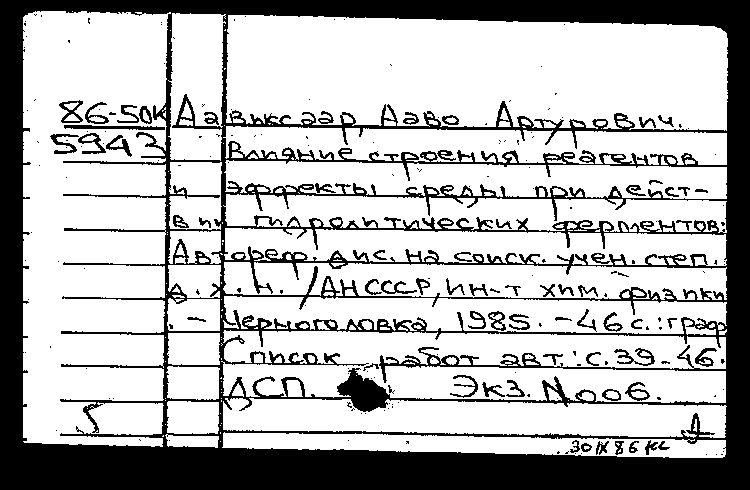 86-50к Аавиксаар, Ааво Артурович.
5943 Влияние строения реагентов
и эффекты среды при дейст-
вии гидролитических ферментов:
Автореф. дис. на соиск. учен. степ.
д. х. н. / АН СССР, Ин-т хим. физики
. - Черноголовка, 1985. - 46 с.: граф
Список работ авт.: с. 39-46.
ДСП. Экз. N 006.
5
30 IX 86 кс